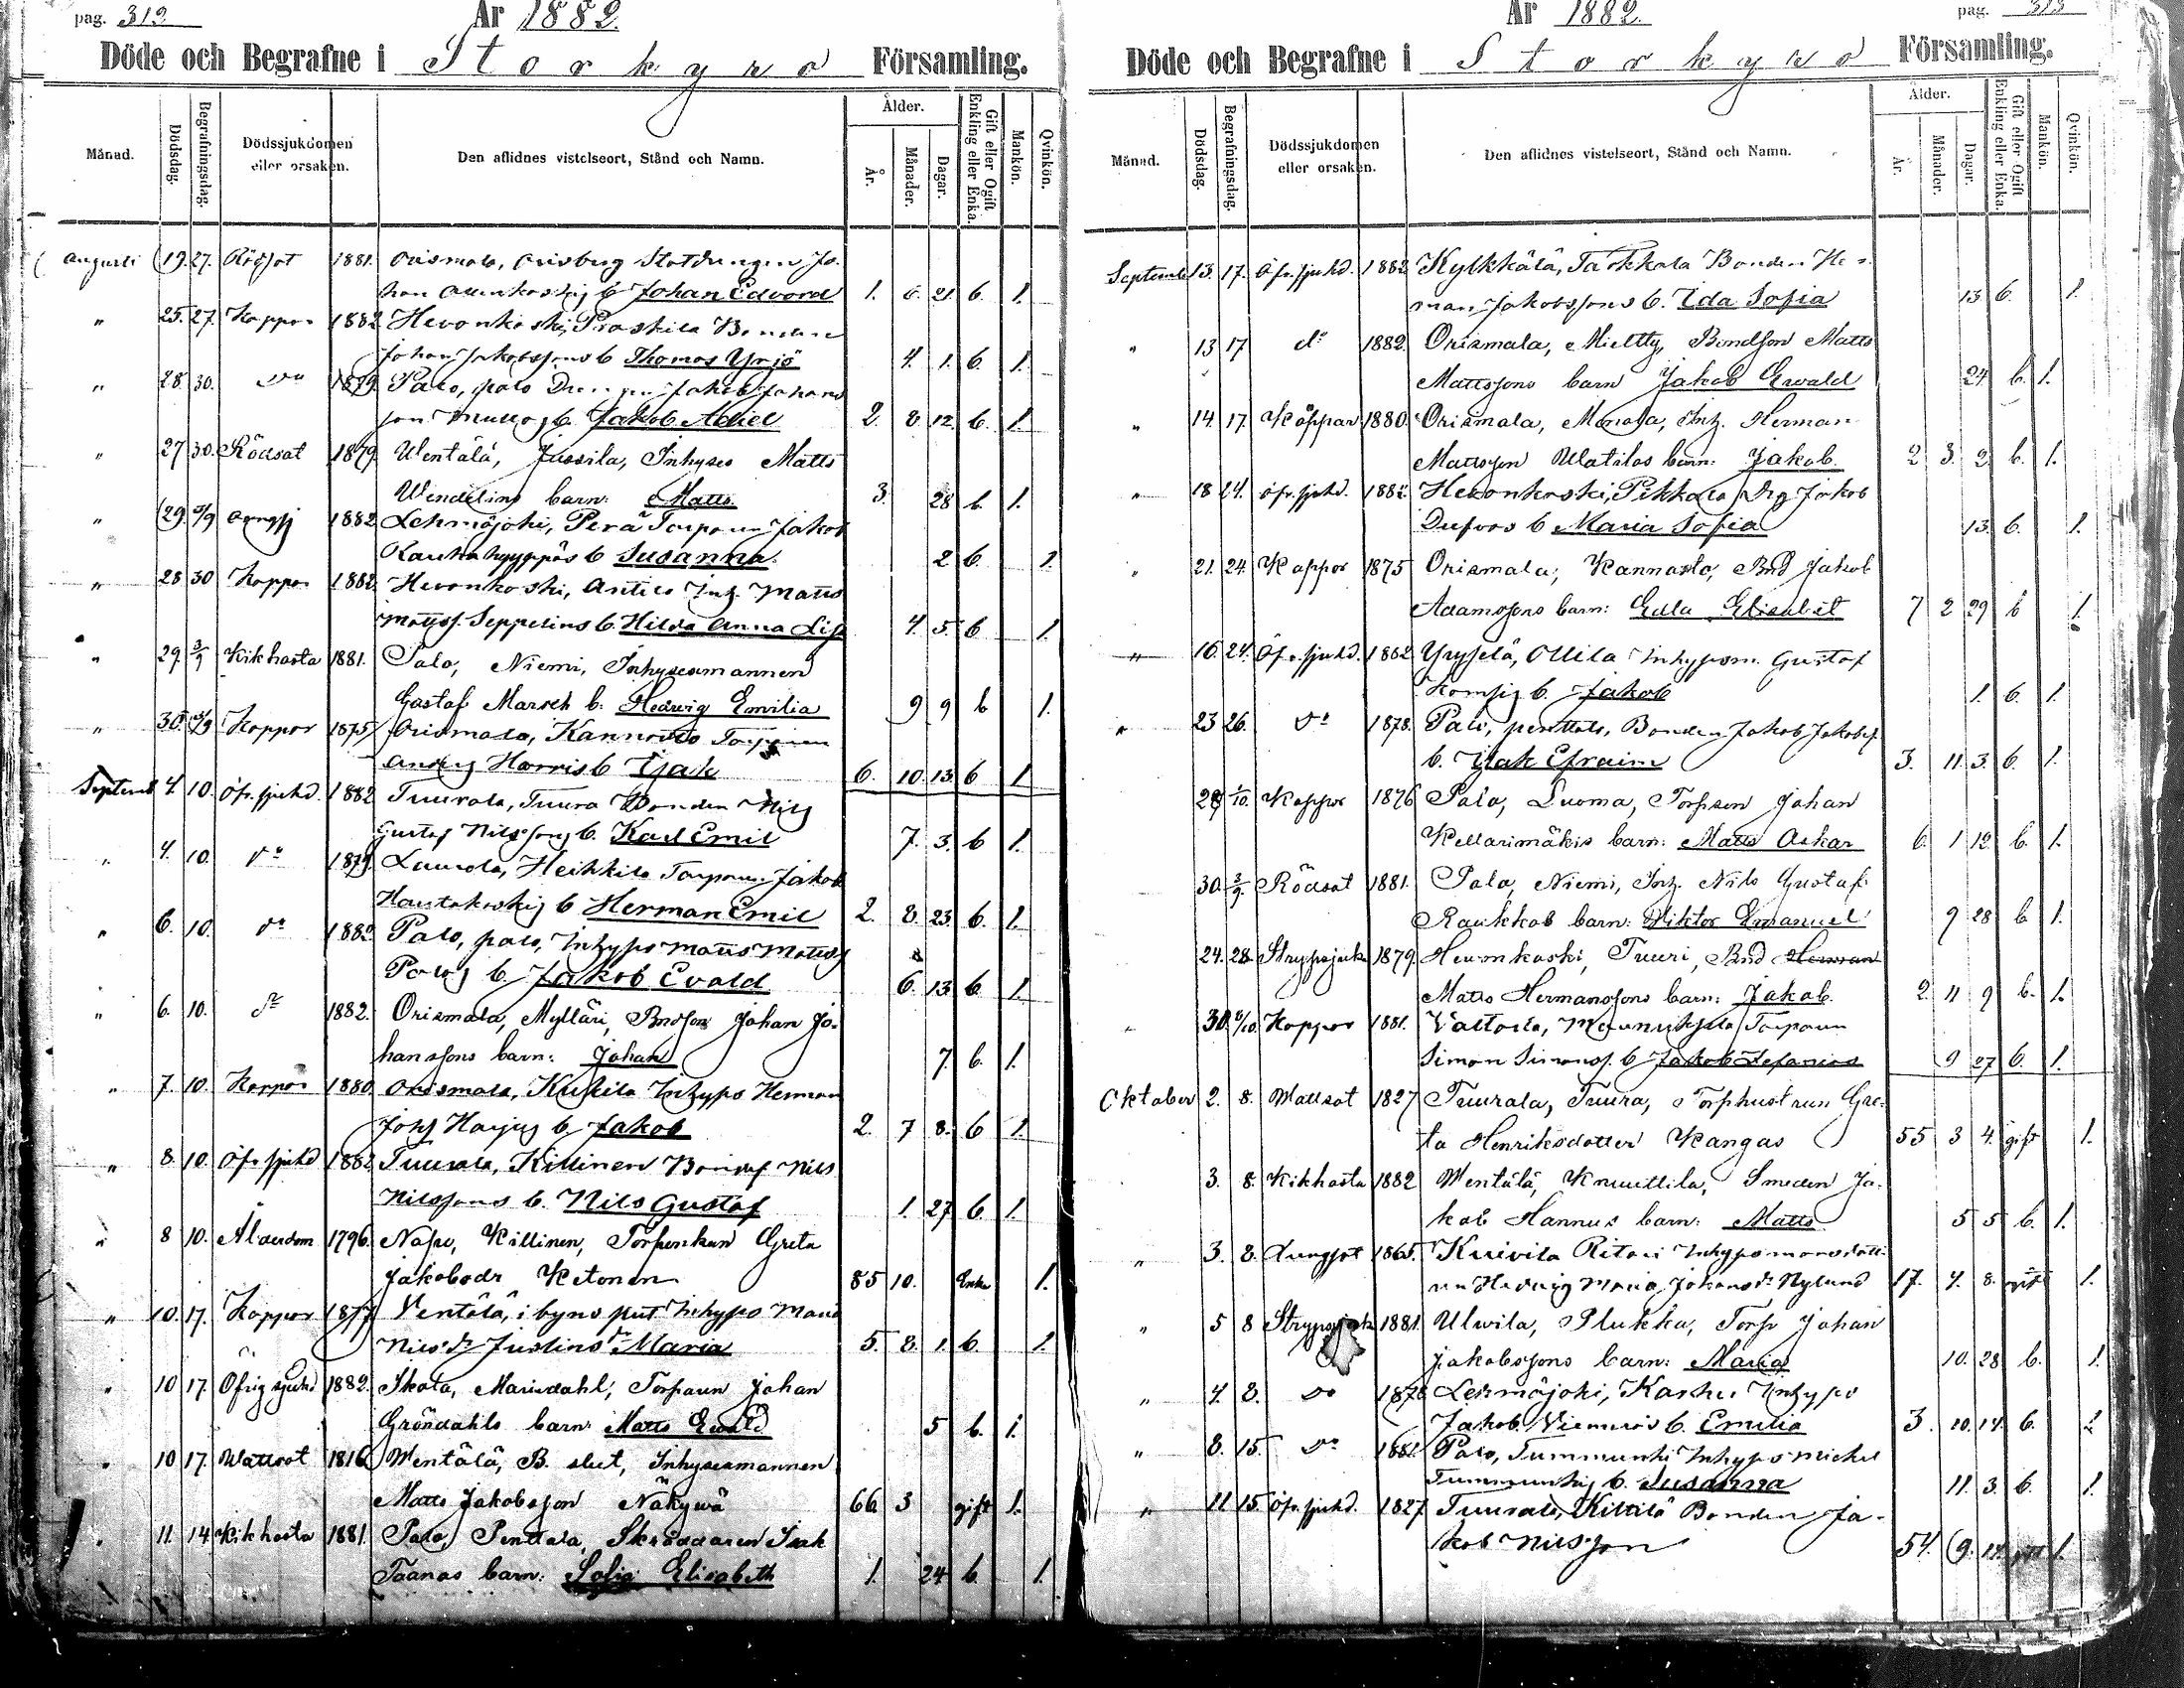 pag. 312
År 1882.
Döde och Begrafne i Storkyro Församling.
Månad.
Dödsdag.
Begrafningsdag.
Dödssjukdomen eller orsaken.
Den aflidnes vistelseort, Stånd och Namn.
Ålder.
År.
Månader.
Dagar.
Gift eller Ogift Enkling eller Enka.
Mankön.
Qvinkön.
Augusti 19. 27. Rödsot 1881. Orismala, Orisberg Statdrengen Jo-
han b Johan Edvard 1. 6. 21. b. 1.
" 25. 27. Koppor 1882. Hevonkoski, Bonden
Johan Jakobssons b Thomas Yrjö 4. 1. b. 1.
" 28 30. do 1879. Palo, palo Jakob Johans
son b. Jakob Adiel 2. 8. 12. b. 1.
" 27 30. Rödsot 1879 Wentälä, Jussila, Inhyses Matts
Wendelins barn: Matts 3. 28 b. 1.
" 29. 3/9 1882 Lehmäjoki, Perä Torparen Jakob
b Susanna. 2 b. 1.
" 28 30 Koppor 1882. Hevonkoski, Inh. Matts
Mattss. Seppelins b. Hilda Anna Lisa 4. 5. b 1.
" 29. 3/9 Kikhosta 1881. Palo, Niemi, Inhysesmannen
Gustaf Marsch b: Hedwig Emilia 9 9 b 1.
" 30. 3/9 Koppor 1875 Orismala, Kannosto Torparen
Anders Harris b Isak 6. 10. 13. b 1.
Septemb 4. 10. Öfr. sjukd. 1882 Tuurala, Tuura Bonden Nils
Gustaf Nilssons b. Karl Emil 7. 3. b 1.
" 4. 10. do 1879. Laurola, Heikkila Torparen Jakob
b Herman Emil 2. 8. 23. b. 1.
" 6. 10. do 1882 Palo, palo, Inhyses Matts Mattss
Palos b Jakob Evald 6. 13. b. 1.
" 6. 10. do 1882. Orismala, Mylläri, Bndson Johan Jo-
hanssons barn: Johan 7. b. 1.
" 7. 10. Koppor 1880. Orismala, Inhyses Herman
Harjus b Jakob 2. 7 8. b 1.
" 8. 10. Öfr. sjukd 1882 Tuurala, Killinen Nils
Nilssons b. Nils Gustaf 1. 27 b. 1.
" 8 10. Ålderdom 1796. Napo, Killinen, Torpenkan Greta
Jakobsdr Ketonen 85 10. Enka 1.
" 10. 17. Koppor 1877 Ventälä, i byns Inhyses Maria
Nilsdr Justins dr Maria 5. 8. 1. b. 1.
" 10 17. Öfrig sjukd 1882. Ikola, Mariedahl, Torparen Johan
Gröndahls barn: Matts Ewald 5 b. 1.
" 10 17. Wattsot 1816 Wentälä, B. slut, Inhysesmannen
Matts Jakobsson Näkywä 66 3 gift 1.
" 11. 14 Kikhosta 1881. Palo, Penttala, Skräddaren Isak
Taanas barn: Sofia Elisabeth 1. 24 b. 1.
År 1882.
pag. 313
Döde och Begrafne i Storkyro Församling.
Månad.
Dödsdag.
Begrafningsdag.
Dödssjukdomen eller orsaken.
Den aflidnes vistelseort, Stånd och Namn.
Ålder.
År.
Månader.
Dagar.
Gift eller Ogift Enkling eller Enka.
Mankön.
Qvinkön.
Septemb 13. 17. Öfr. sjukd. 1882 Kylkkälä, Bonden Her-
man Jakobssons b. Ida Sofia 13 b. 1.
" 13 17 do 1882. Orismala, Mieltty, Bondson Matts
Mattssons barn Jakob Ewald 24 b. 1.
" 14. 17. Koppor 1880. Orismala, Inh. Herman
Mattsson barn: Jakob. 2 3. 2. b. 1.
" 18 24. Öfr. sjukd. 1882. Hevonkoski, Pikkala Jakob
b Maria Sofia 13. b. 1.
" 21. 24. Koppor 1875 Orismala, Kannosto, Bnd Jakob
Adamssons barn: Edla Elisabet 7 2 29 b 1.
" 16. 24. Öfr. sjukd. 1882 Yryselä, Ollila Inhysesm. Gustaf
b. Jakob 1. b. 1.
" 23 26. do 1878. Palo, penttala, Bonden Jakob Jakobss
b. Isak Efraim 3. 11. 3. b. 1.
29 1/10. Koppor 1876 Palo, Luoma, Torparen Johan
Kellarimäkis barn: Matts Oskar 6. 1 12 b. 1.
30. 3/9. Rödsot 1881. Palo, Niemi, Inh. Nils Gustaf
barn: Wiktor Emanuel 9 28 b 1.
24. 28. Strypsjuka 1879 Hevonkoski, Tuuri, Bnd Herman
Matts Hermanssons barn: Jakob. 2. 11 9 b. 1.
" 30. 8/10. Koppor 1881. Torparen
Simon Simonss. b Jakob Stefanias 9 27 b. 1.
Oktober 2. 8. Wattsot 1827 Tuurala, Tuura, Torphustrun Gre-
ta Henriksdotter Kangas 55 3 4. gift 1.
3. 8. Kikhosta 1882 Wentälä, Knuuttila, Smeden Ja-
kob Hannus barn: Matts 5 5 b. 1.
" 3. 8. Lungsot 1865. Kuivila Ritari Inhysesmansdott-
ren Hedvig Maria Johansdr Nylund 17. 4. 8. ogift 1.
" 5 8 Strypsjuka 1881. Ulwila, Plukka, Torp. Johan
Jakobssons barn: Maria 10. 28 b. 1.
" 4. 8. do 1878 Lehmäjoki, Karhu Inhyses
Jakob b. Emilia 3. 10. 14. b. 1
" 8. 15. do 1881. Palo, Tummunki Inhyses Michel
Tummunkis b. Susanna 11. 3. b. 1.
" 11 15. Öfr. sjukd. 1827 Tuurala, Kittilä Bonden Ja-
kob Nilsson 54. 9. 14. gift 1.